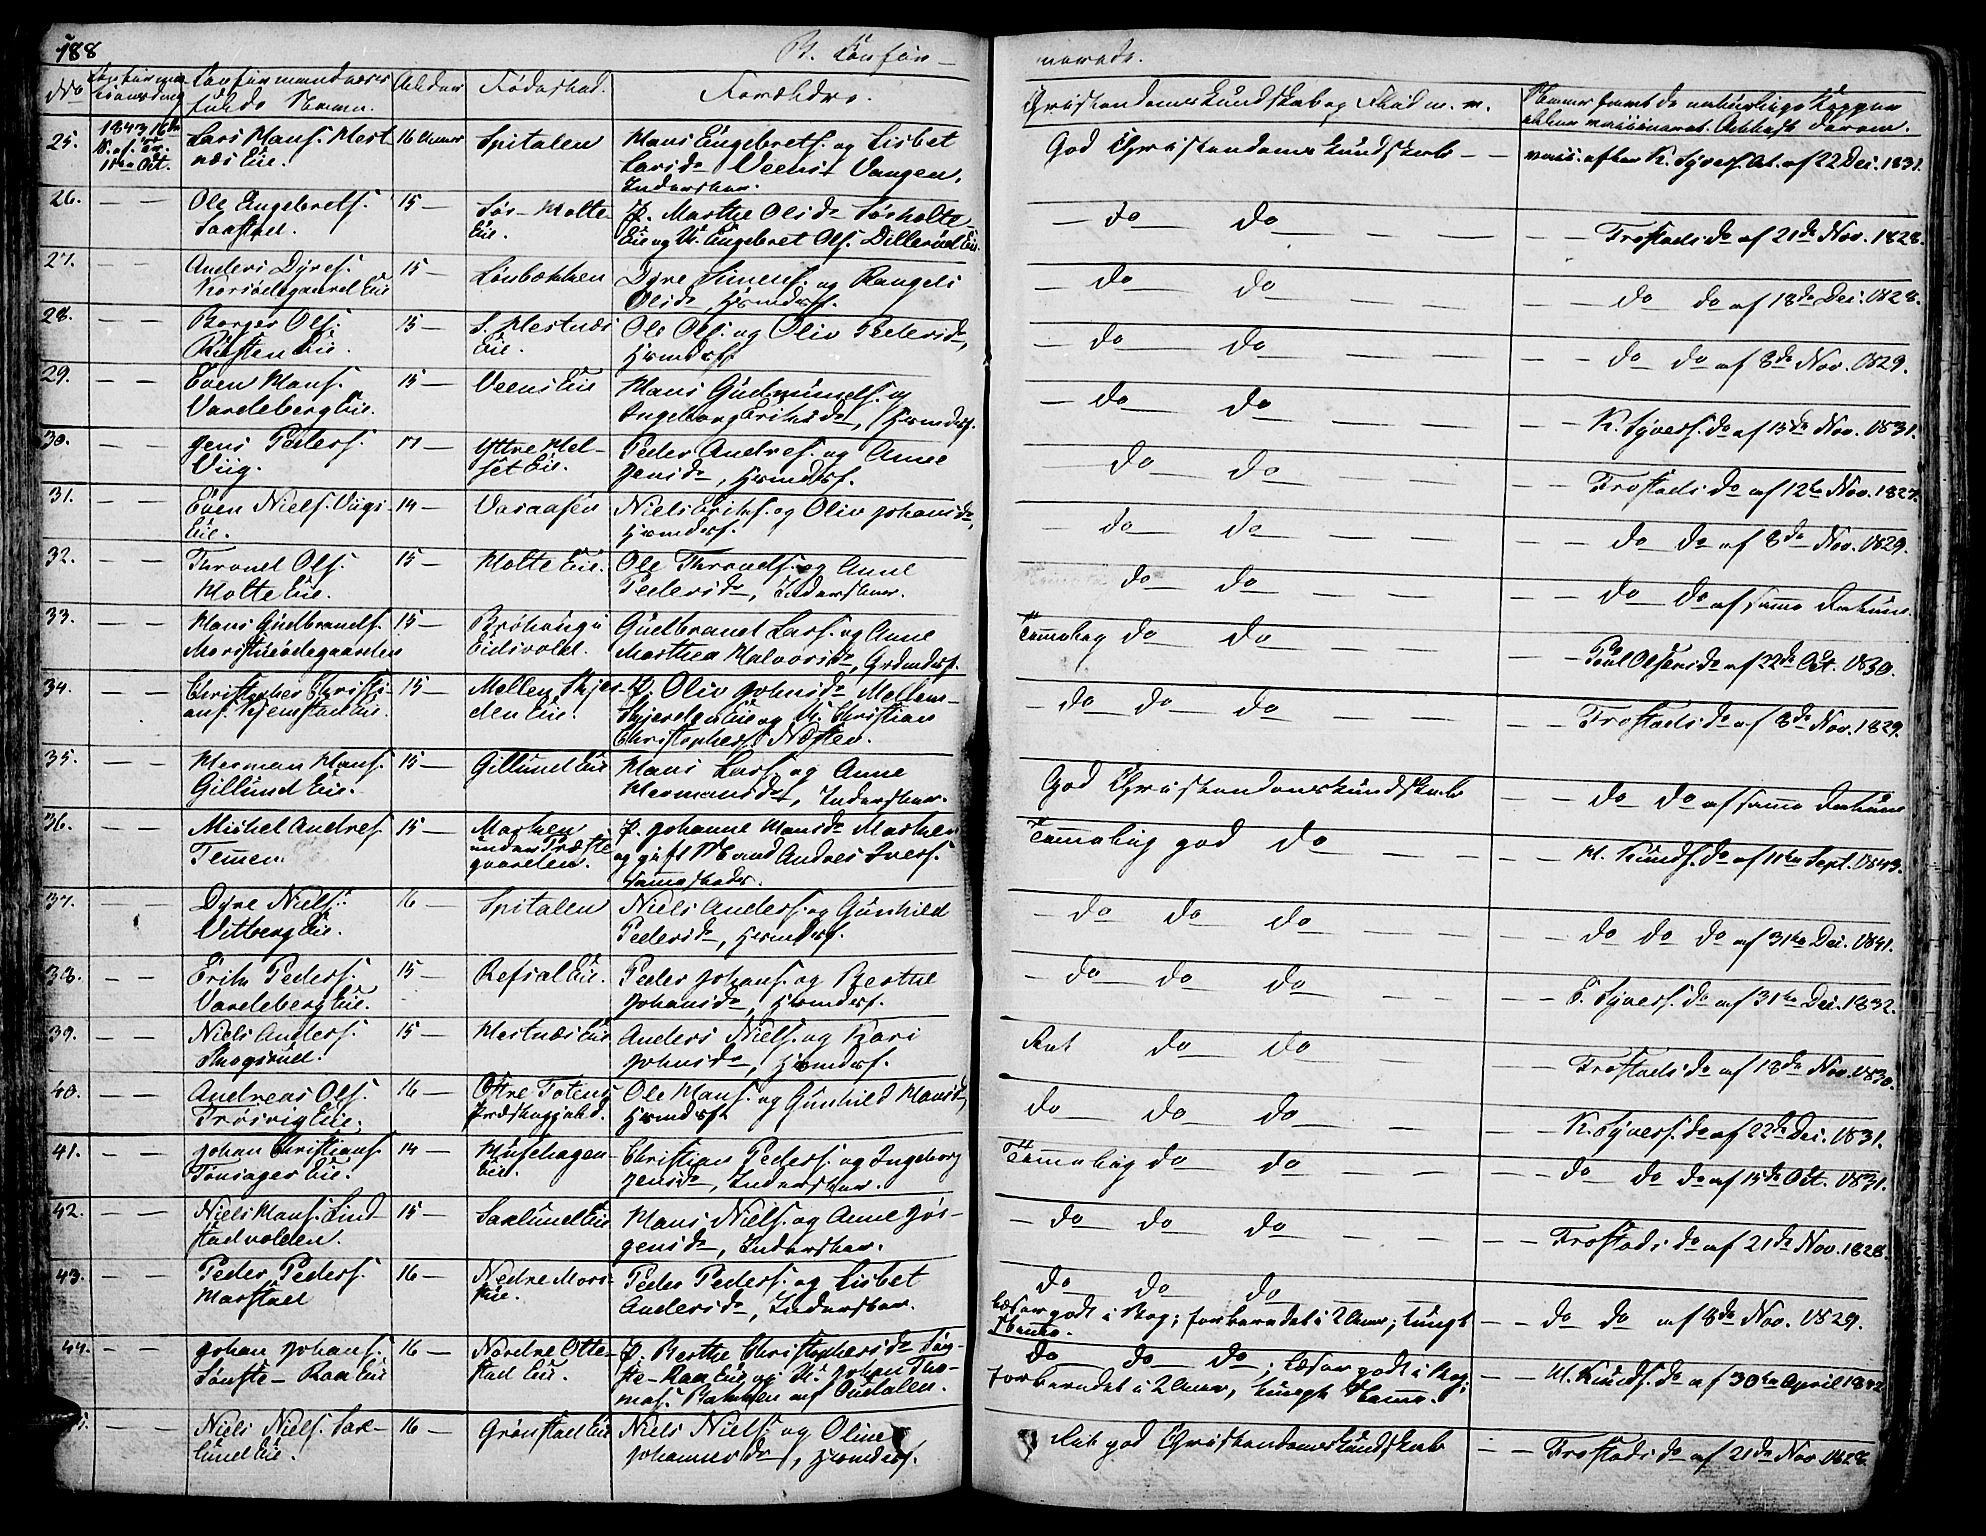 188
B. Confir-
merede.
No
Confirma-
tionsdag
Confirmandernes
fulde Navn.
Alder
Fødested.
Forældre.
Christendomskundskab og Flid m. m.
25.
1843 16de
S. ef. Tr.
Lars Hans. Hest
næs Eie.
16 Aar
Spitalen
Hans Engebrets. og Lisbet
Larsd.
Vangen,
Inderster.
God Christendomskundskab
vacc. efter K. Syvers. At. af 22 Dec. 1831.
26.
Ole Engebrets.
Saastad.
15 —
Sør-Holte-
Eie.
P. Marthe Olsd. Sørholte-
Eie og U. Engebret Ols. Dillerud Eie.
— do do
Frostads do af 21de Nov. 1828.
27.
Anders Dyres.
15 —
Lønbekken
Dyre Simens. og Rangeli
Olsd., Hsmdsf.
— do do
— do do af 18de Dec. 1828.
28.
Borger Ols.
15 —
S. Hestnæs
Eie.
Ole Ols. og Oliv Pedersd.,
Hsmdsf.
— do do
— do do af 8de Nov. 1829.
29.
Even Hans.
Vardeberg Eie.
15 —
Veens Eie
Hans Gudmunds. og
Ingeborg Eriksd., Hsmdsf.
— do do
K. Syvers. do af 15de Nov. 1831.
30.
Jens Peders.
Viig.
17 —
Yttre Hel-
set Eie.
Peder Andres. og Anne
Jensd., Hsmdsf.
do do
Frostads do af 12te Nov. 1827.
31.
Even Niels. Viigs
Eie.
14 —
Vasaasen
Niels Eriks. og Oliv Johansd.,
Hsmdsf.
— do do
— do do af 8de Nov. 1829.
32.
Thrond Ols.
Holte Eie.
15 —
Holte Eie.
Ole Thronds. og Anne
Pedersd., Inderster.
do do
— do do af samme Datum
33.
Hans Gudbrands.
Morstueødegaarden
15 —
Brøhaug i
Eidsvold.
Gudbrand Lars. og Anne
Marthea Halvorsd., Grdmdsf.
Temmelig do do
Poul Olsens do af 22de Oct. 1830.
34.
Christopher Christi-
ans. Kjemstad Eie.
15 —
Mellem Skjer-
den Eie.
P. Oliv Johnsd. Mellem-
Skjerden Eie og U. Christian
Christophers. Næsten.
— do do do
Frostads do af 8de Nov. 1829.
35.
Herman Hans.
Gillund Eie.
15 —
Gillund Eie
Hans Lars. og Anne
Hermansd., Inderster.
God Christendomskundskab
— do do af samme Datum
36.
Michel Andres.
15 —
Marken
under Præste-
gaarden.
P. Johanne Hansd. Marken
og gift Mand Andres Ivers.
sammesteds.
Temmelig god do
H. Knuds. do af 11te Sept. 1843.
37.
Dyre Niels.
Vitberg Eie.
16 —
Spitalen
Niels Anders. og Gunhild
Pedersd., Hsmdsf.
— do do do
do do do af 31te Dec. 1841.
38.
Erik Peders.
Vardeberg Eie.
15 —
Refsal Eie.
Peder Johans. og Berthe
Johansd., Hsmdsf.
— do do do
Syvers. do af 31te Dec. 1832.
39.
Niels Anders.
Skogsrud.
15 —
Hestnæs Eie
Anders Niels. og Kari
Johnsd., Hsmdsf.
do do
Frostads do af 18de Nov. 1830.
40.
Andreas Ols.
Frøsvig Eie.
16 —
Østre Totens
Præstegjeld.
Ole Hans. og Gunhild Hansd.
Hsmdsf.
do do do
K. Syvers. do af 22de Dec. 1831.
41.
Johan Christians.
Tønsager Eie.
14 —
Musehagen-
Eie.
Christian Peders. og Ingeborg
Jensd., Inderster.
Temmelig do do
— do do do af 15de Oct. 1831.
42.
Niels Hans. Lind-
stadvolden.
15 —
Saxlund Eie
Hans Niels. og Anne Jør-
gensd., Inderster.
— do do do
Frostads do af 21de Nov. 1828.
43.
Peder Peders.
Harstad
16 —
Nedre Mors-
tue.
Peder Peders. og Lisbet
Andersd., Inderster.
do do do
Læser godt i Bog; forberedet i 2 Aar; tungt
Nemme.
— do do af 8de Nov. 1829.
44.
Johan Johans.
Sønste-Raa Eie
16 —
Nordre Otte-
stad Eie.
P. Berthe Christophersd. Søn-
ste-Raa Eie og U. Johan Tho-
mas. Bakken ved Oudalen.
do do do; Læser godt i Bog;
forberedet i 2 Aar, tungt Nemme.
H. Knuds. do af 30te April 1842
Niels Niels. Sax-
lund Eie.
16 —
Grønstad Eie
Niels Niels. og Oline
Johannesd., Hsmdsf.
god Christendomskundskab
Frostads do af 21de Nov. 1828.